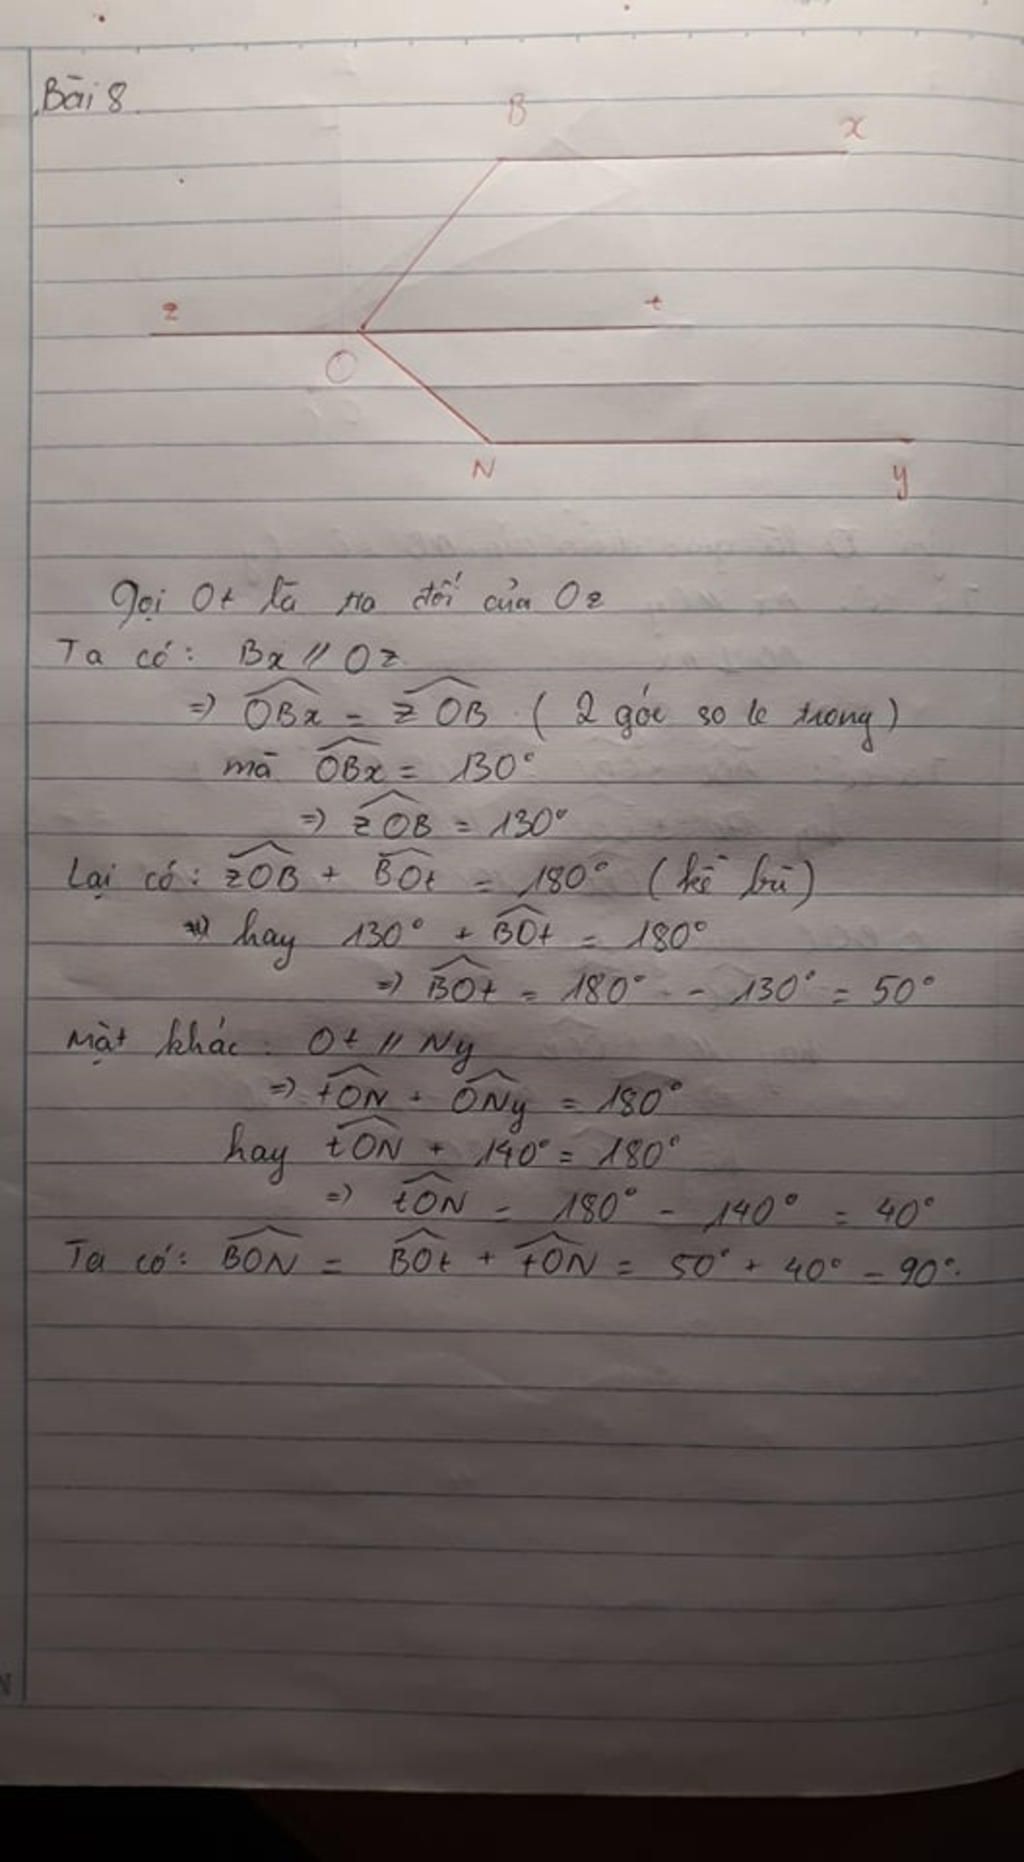 Bài 8
B
x
z
t
O
N
y
Gọi Ot là tia đối của Oz
Ta có: Bx // Oz
=> OBx = zOB (2 góc so le trong)
mà OBx = 130°
=> zOB = 130°
Lại có: zOB + BOt = 180° (kề bù)
hay 130° + BOt = 180°
=> BOt = 180° - 130° = 50°
Mặt khác: Ot // Ny
=> tON + ONy = 180°
hay tON + 140° = 180°
=> tON = 180° - 140° = 40°
Ta có: BON = BOt + tON = 50° + 40° = 90°.